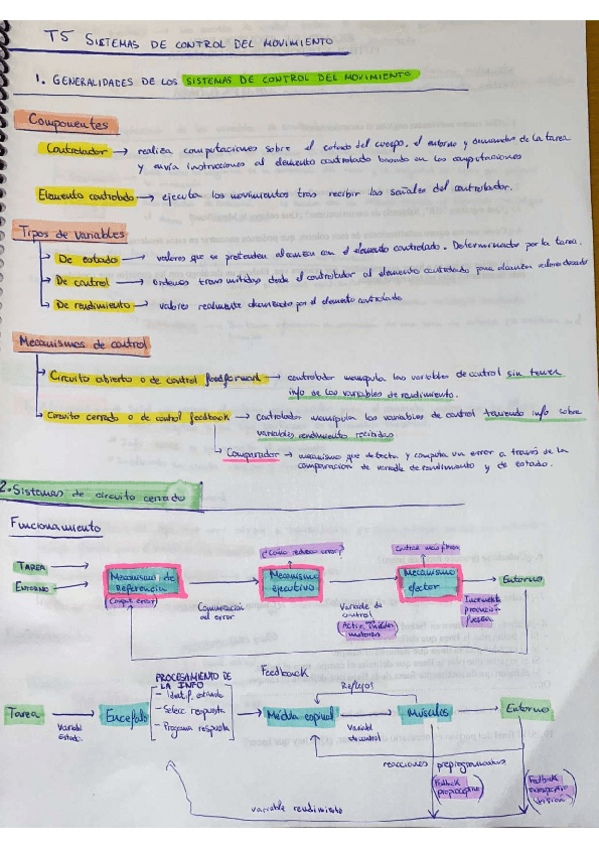 T5 SISTEMAS DE CONTROL DEL MOVIMIENTO
1. GENERALIDADES DE LOS SISTEMAS DE CONTROL DEL MOVIMIENTO
Componentes
Controlador → realiza computaciones sobre el estado del cuerpo, el entorno y demandas de la tarea
y envía instrucciones al elemento controlado basado en las computaciones
Elemento controlado → ejecuta los movimientos tras recibir las señales del controlador.
Tipos de variables
De estado → valores que se pretenden alcanzar con el elemento controlado. Determinador por la tarea.
De control → órdenes transmitidas desde el controlador al elemento controlado para alcanzar valores deseado
De rendimiento → valores realmente alcanzados por el elemento controlado
Mecanismos de control
Circuito abierto o de control feedforward → controlador manipula las variables de control sin tener
info de las variables de rendimiento.
Circuito cerrado o de control feedback → controlador manipula las variables de control teniendo info sobre
variables rendimiento recibidas
Comparador → mecanismo que detecta y computa un error a través de la
comparación de variable de rendimiento y de estado.
2. Sistemas de circuito cerrado
Funcionamiento
¿Cómo reducir error?
TAREA
ENTORNO
Mecanismo de Referencia
(Comput error)
Comunicación del error
Mecanismo ejecutivo
Variable de control
(Activ. motoras)
Mecanismo efector
Entorno
Incremento producción fuerza
Feedback
PROCESAMIENTO DE LA INFO
- Identif. estímulo
- Selecc respuesta
- Programa respuesta
Reflejos
Tarea
Variable Estado.
Encéfalo
Médula espinal
Variable de control
Músculos
Entorno
reacciones preprogramadas
(Feedback propioceptivo)
(Feedback exteroceptivo visión)
variable rendimiento